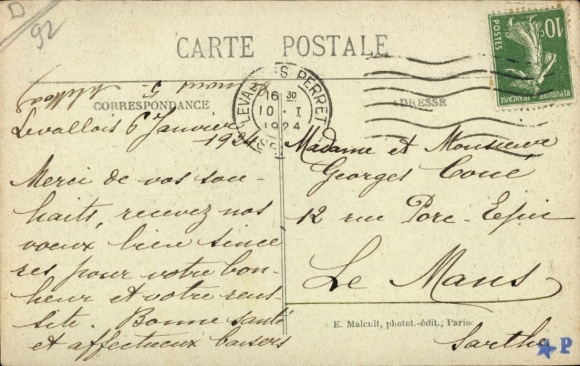 D
92
CARTE POSTALE
10c
POSTES
REPUBLIQUE FRANÇAISE
LEVALLOIS PERRET
16 30
10 - I
1924
CORRESPONDANCE
ADRESSE
Levallois 6 Janvier
1924
Merci de vos sou-
haits, recevez nos
voeux bien sincè
res pour votre bon-
heur et votre reus
site. Bonne santé
et affectueux baisers
Madame et Monsieur
Georges Coué
12 rue Porc-Epic
Le Mans
Sarthe
E. Malcuit, photot.-édit., Paris
P